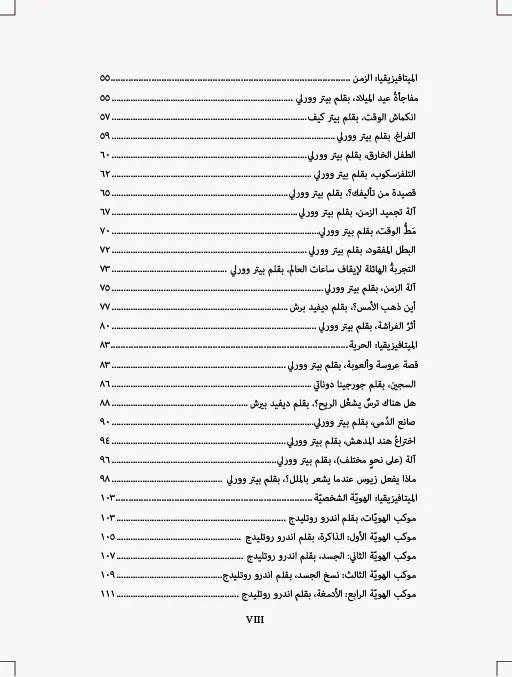 الميتافيزيقيا: الزمن ........ ٥٥
مفاجأةُ عيد الميلاد، بقلم بيتر وورلي ........ ٥٥
انكماش الوقت، بقلم بيتر كيف ........ ٥٧
الفراغ، بقلم بيتر وورلي ........ ٥٩
الطفل الخارق، بقلم بيتر وورلي ........ ٦٠
التلفزسكوب، بقلم بيتر وورلي ........ ٦٢
قصيدة من تأليفك؟، بقلم بيتر وورلي ........ ٦٥
آلة تجميد الزمن، بقلم بيتر وورلي ........ ٦٧
مَطُّ الوقت، بقلم بيتر وورلي ........ ٧٠
البطل المفقود، بقلم بيتر وورلي ........ ٧٢
التجربةُ الهائلة لإيقاف ساعات العالم، بقلم بيتر وورلي ........ ٧٣
آلة الزمن، بقلم بيتر وورلي ........ ٧٥
أين ذهب الأمس؟، بقلم ديفيد برش ........ ٧٧
أثرُ الفراشة، بقلم بيتر وورلي ........ ٨٠
الميتافيزيقيا: الحرية ........ ٨٣
قصة عروسة وألعوبة، بقلم بيتر وورلي ........ ٨٣
السجين، بقلم جورجينا دوناتي ........ ٨٦
هل هناك ترسٌ يشغّل الريح؟، بقلم ديفيد بيرش ........ ٨٨
صانع الدُمى، بقلم بيتر وورلي ........ ٩٠
اختراعُ هند المدهش، بقلم بيتر وورلي ........ ٩٤
آلة (على نحوٍ مختلف)، بقلم بيتر وورلي ........ ٩٦
ماذا يفعل زيوس عندما يشعر بالملل؟، بقلم بيتر وورلي ........ ٩٨
الميتافيزيقيا: الهويّة الشخصيّة ........ ١٠٣
موكب الهويّات، بقلم اندرو روتليدج ........ ١٠٣
موكب الهويّة الأول: الذاكرة، بقلم اندرو روتليدج ........ ١٠٥
موكب الهويّة الثاني: الجسد، بقلم اندرو روتليدج ........ ١٠٧
موكب الهويّة الثالث: نسخ الجسد، بقلم اندرو روتليدج ........ ١٠٩
موكب الهويّة الرابع: الأدمغة، بقلم اندرو روتليدج ........ ١١١
VIII